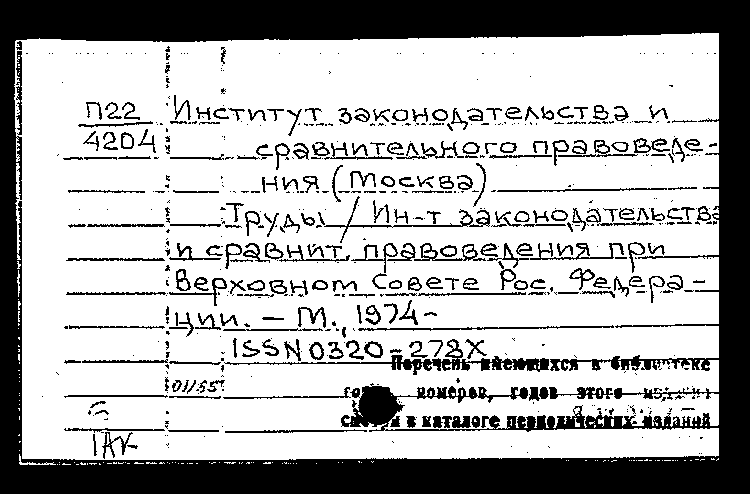 П22 Институт законодательства и
4204 сравнительного правоведе-
ния (Москва)
Труды / Ин-т законодательства
и сравнит. правоведения при
Верховном Совете Рос. Федера-
ции. – М., 1974-
ISSN 0320-278X
Перечень имеющихся в библиотеке
номеров, годов этого
в каталоге периодических изданий